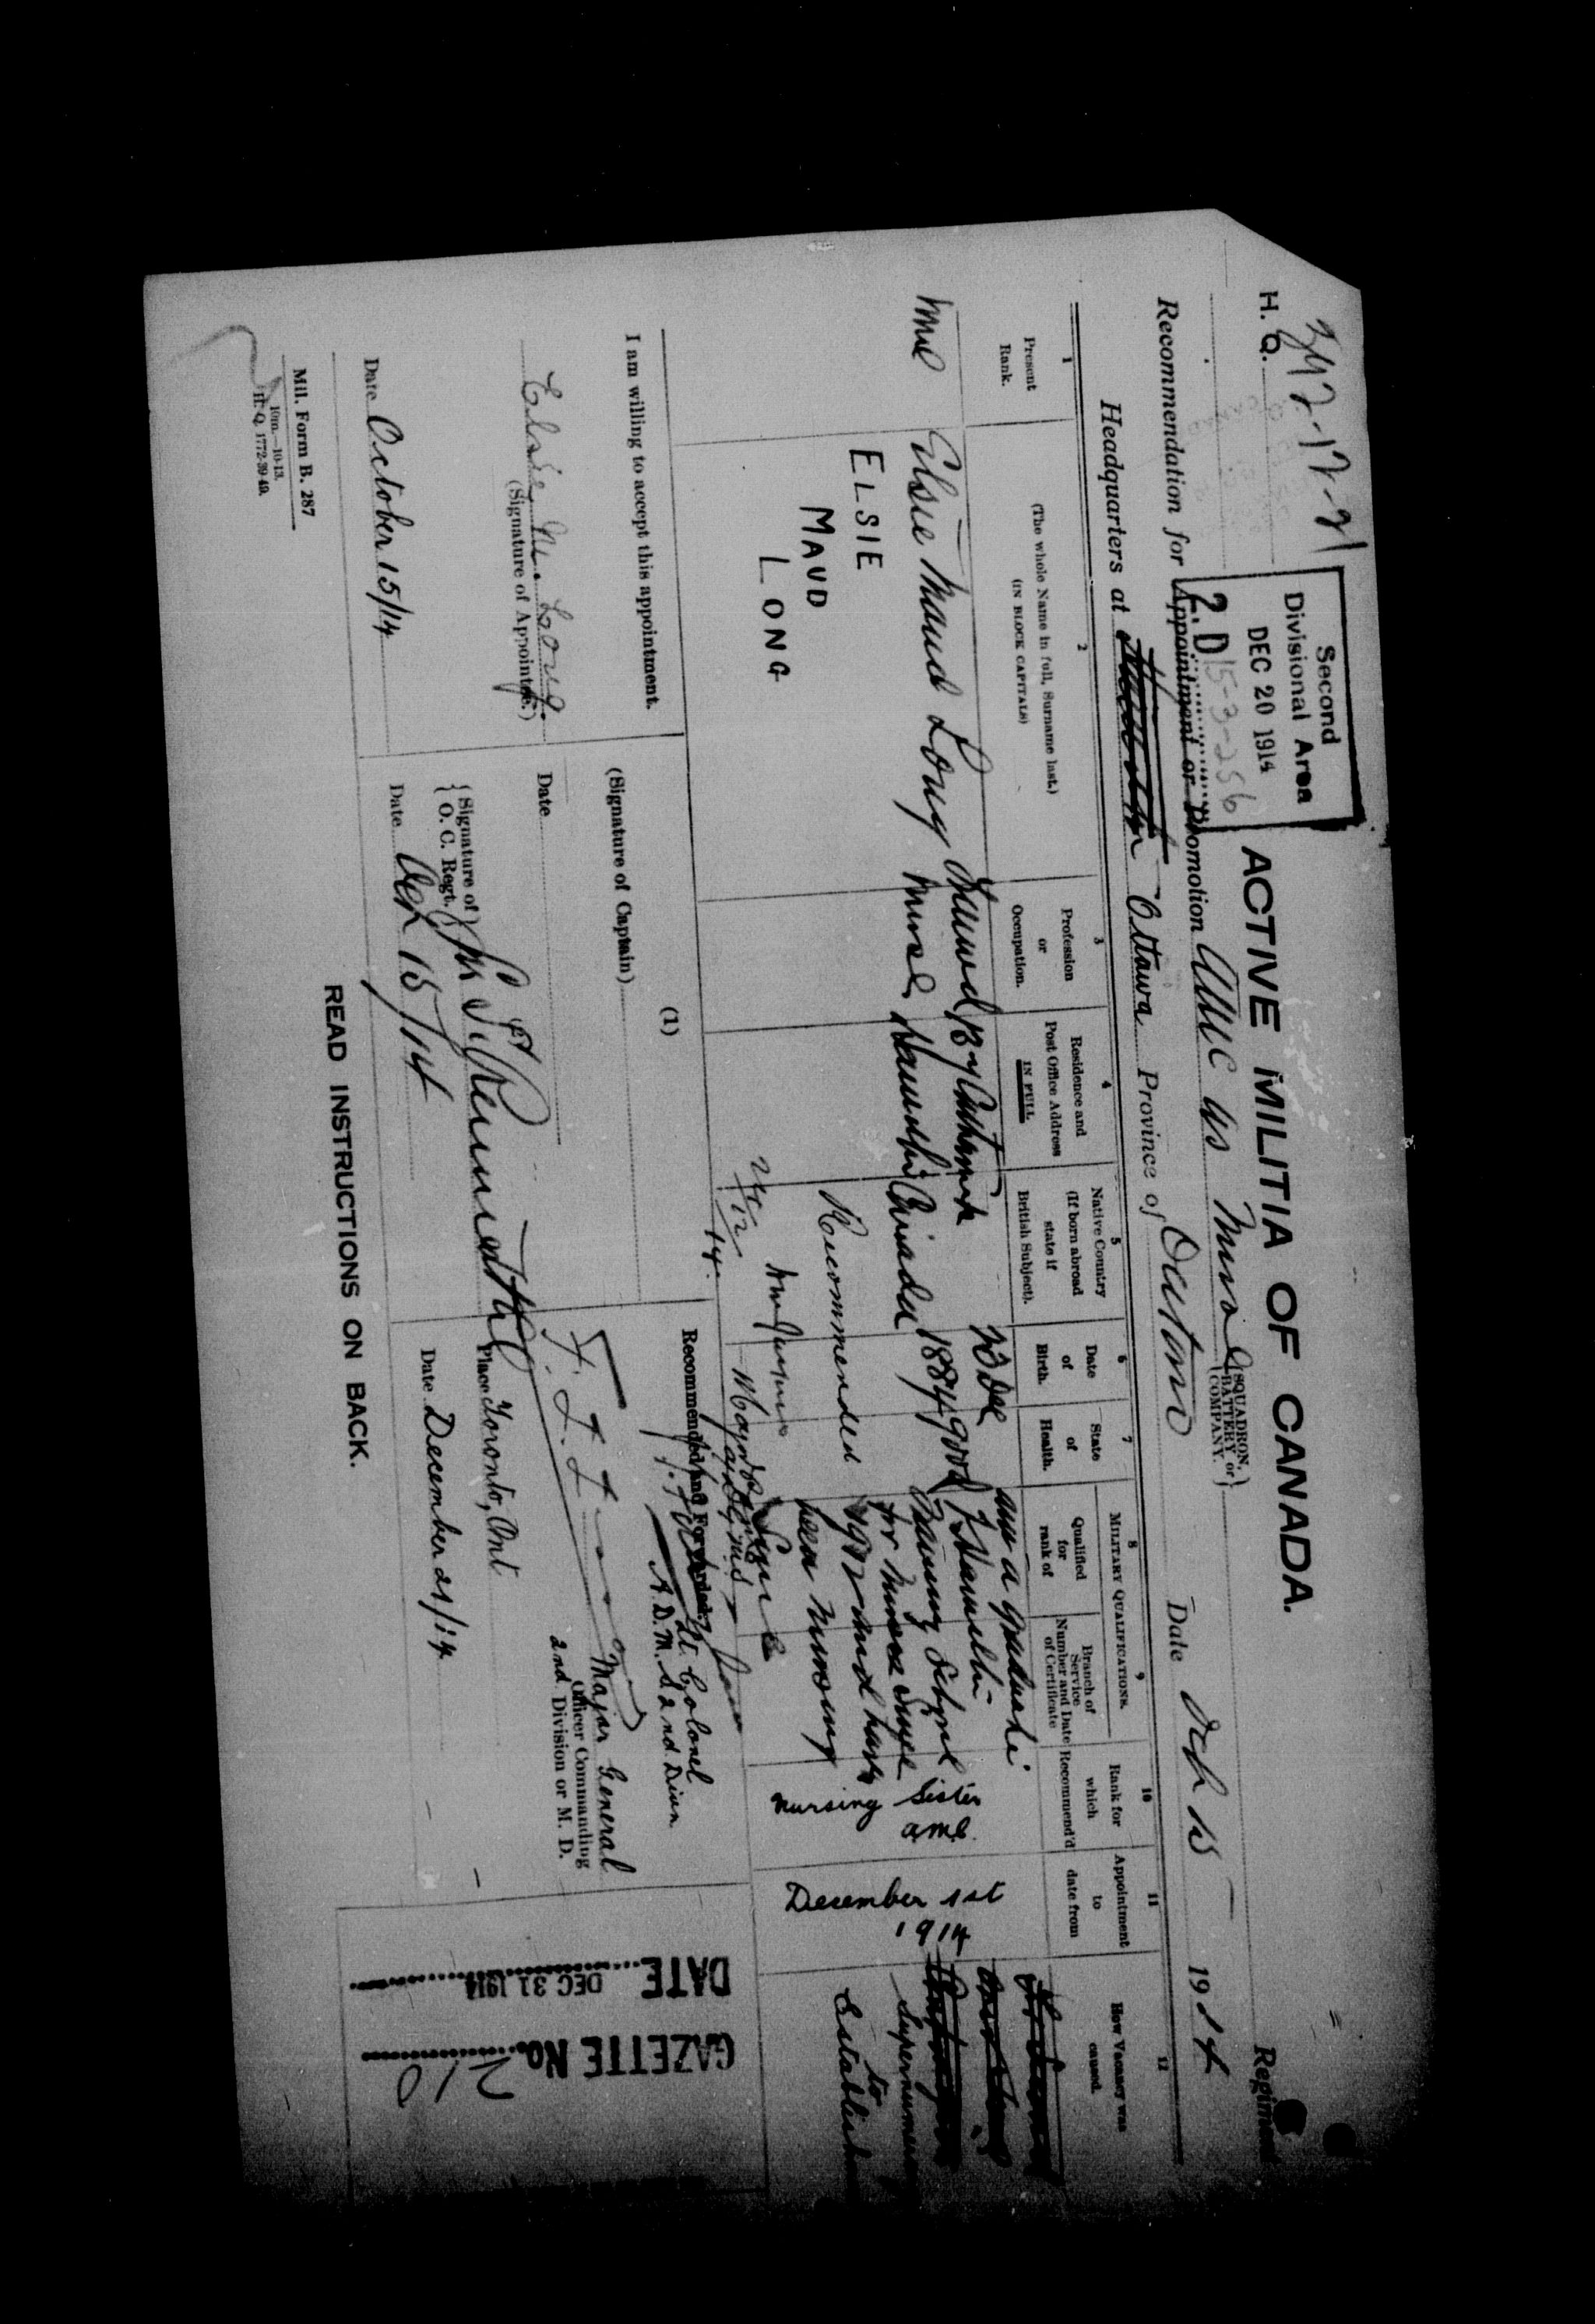 342-12-21
H. Q.
Second
Divisional Area
DEC 20 1914
2. D 15-3-256
ACTIVE MILITIA OF CANADA.
Regiment
Recommendation for Appointment or Promotion AMC as Nurse { SQUADRON, BATTERY or COMPANY. }
Headquarters at Hamilton Ottawa Province of Ontario Date Oct 15 1914
1
Present
Rank.
2
(The whole Name in full, Surname last.)
(IN BLOCK CAPITALS)
3
Profession
or
Occupation.
4
Residence and
Post Office Address
IN FULL
5
Native Country
(If born abroad
state if
British Subject).
6
Date
of
Birth.
7
State
of
Health.
MILITARY QUALIFICATIONS.
8
Qualified
for
rank of
9
Branch of
Service
Number and Date
of Certificate
10
Rank for
which
Recommend'd
11
Appointment
to
date from
12
How Vacancy was
caused.
Elsie Maud Long
ELSIE
MAUD
LONG
Nurse
Hamilton
Canada
23 Dec
1884
good
am a graduate
of Hamilton
Training School
for Nurses since
1912 and have
been nursing
since
Nursing Sister
A.M.C.
December 1st
1914
Supernumerary
to
Establishment
Recommended
24/12/14.
I am willing to accept this appointment.
Elsie M. Long.
(Signature of Appointee.)
Date October 15/14
(1)
(Signature of Captain)
Date
{ Signature of
O. C. Regt. }
Date Oct 15/14
Recommended and Forwarded.
Lt. Colonel
A.D.M.S. 2nd Divn
Major General
Officer Commanding
2nd Division or M. D.
Place Toronto, Ont
Date December 21/14
DATE DEC 31 1914
GAZETTE No. 210
Mil. Form B. 287
10m.—10-13.
H. Q. 1772-39-40.
READ INSTRUCTIONS ON BACK.